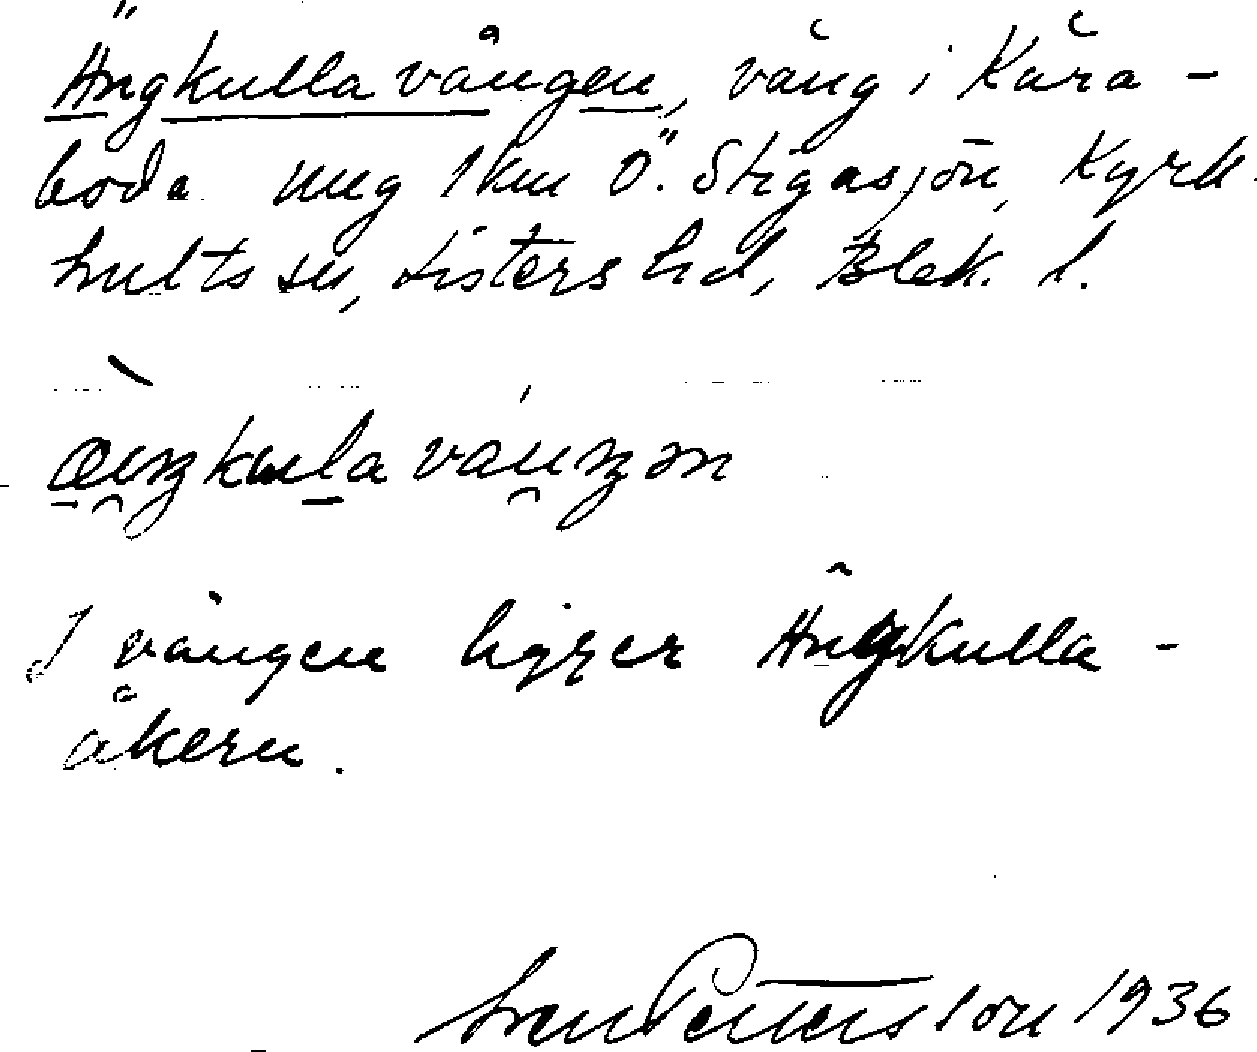 Ängkullavången, vång i Kåra-
boda ung 1 km Ö. Stigasjön, Kyrk-
hults sn, Listers hd, Blek. l.
I vången ligger Ängkulla-
åkern.
Sven Pettersson 1936